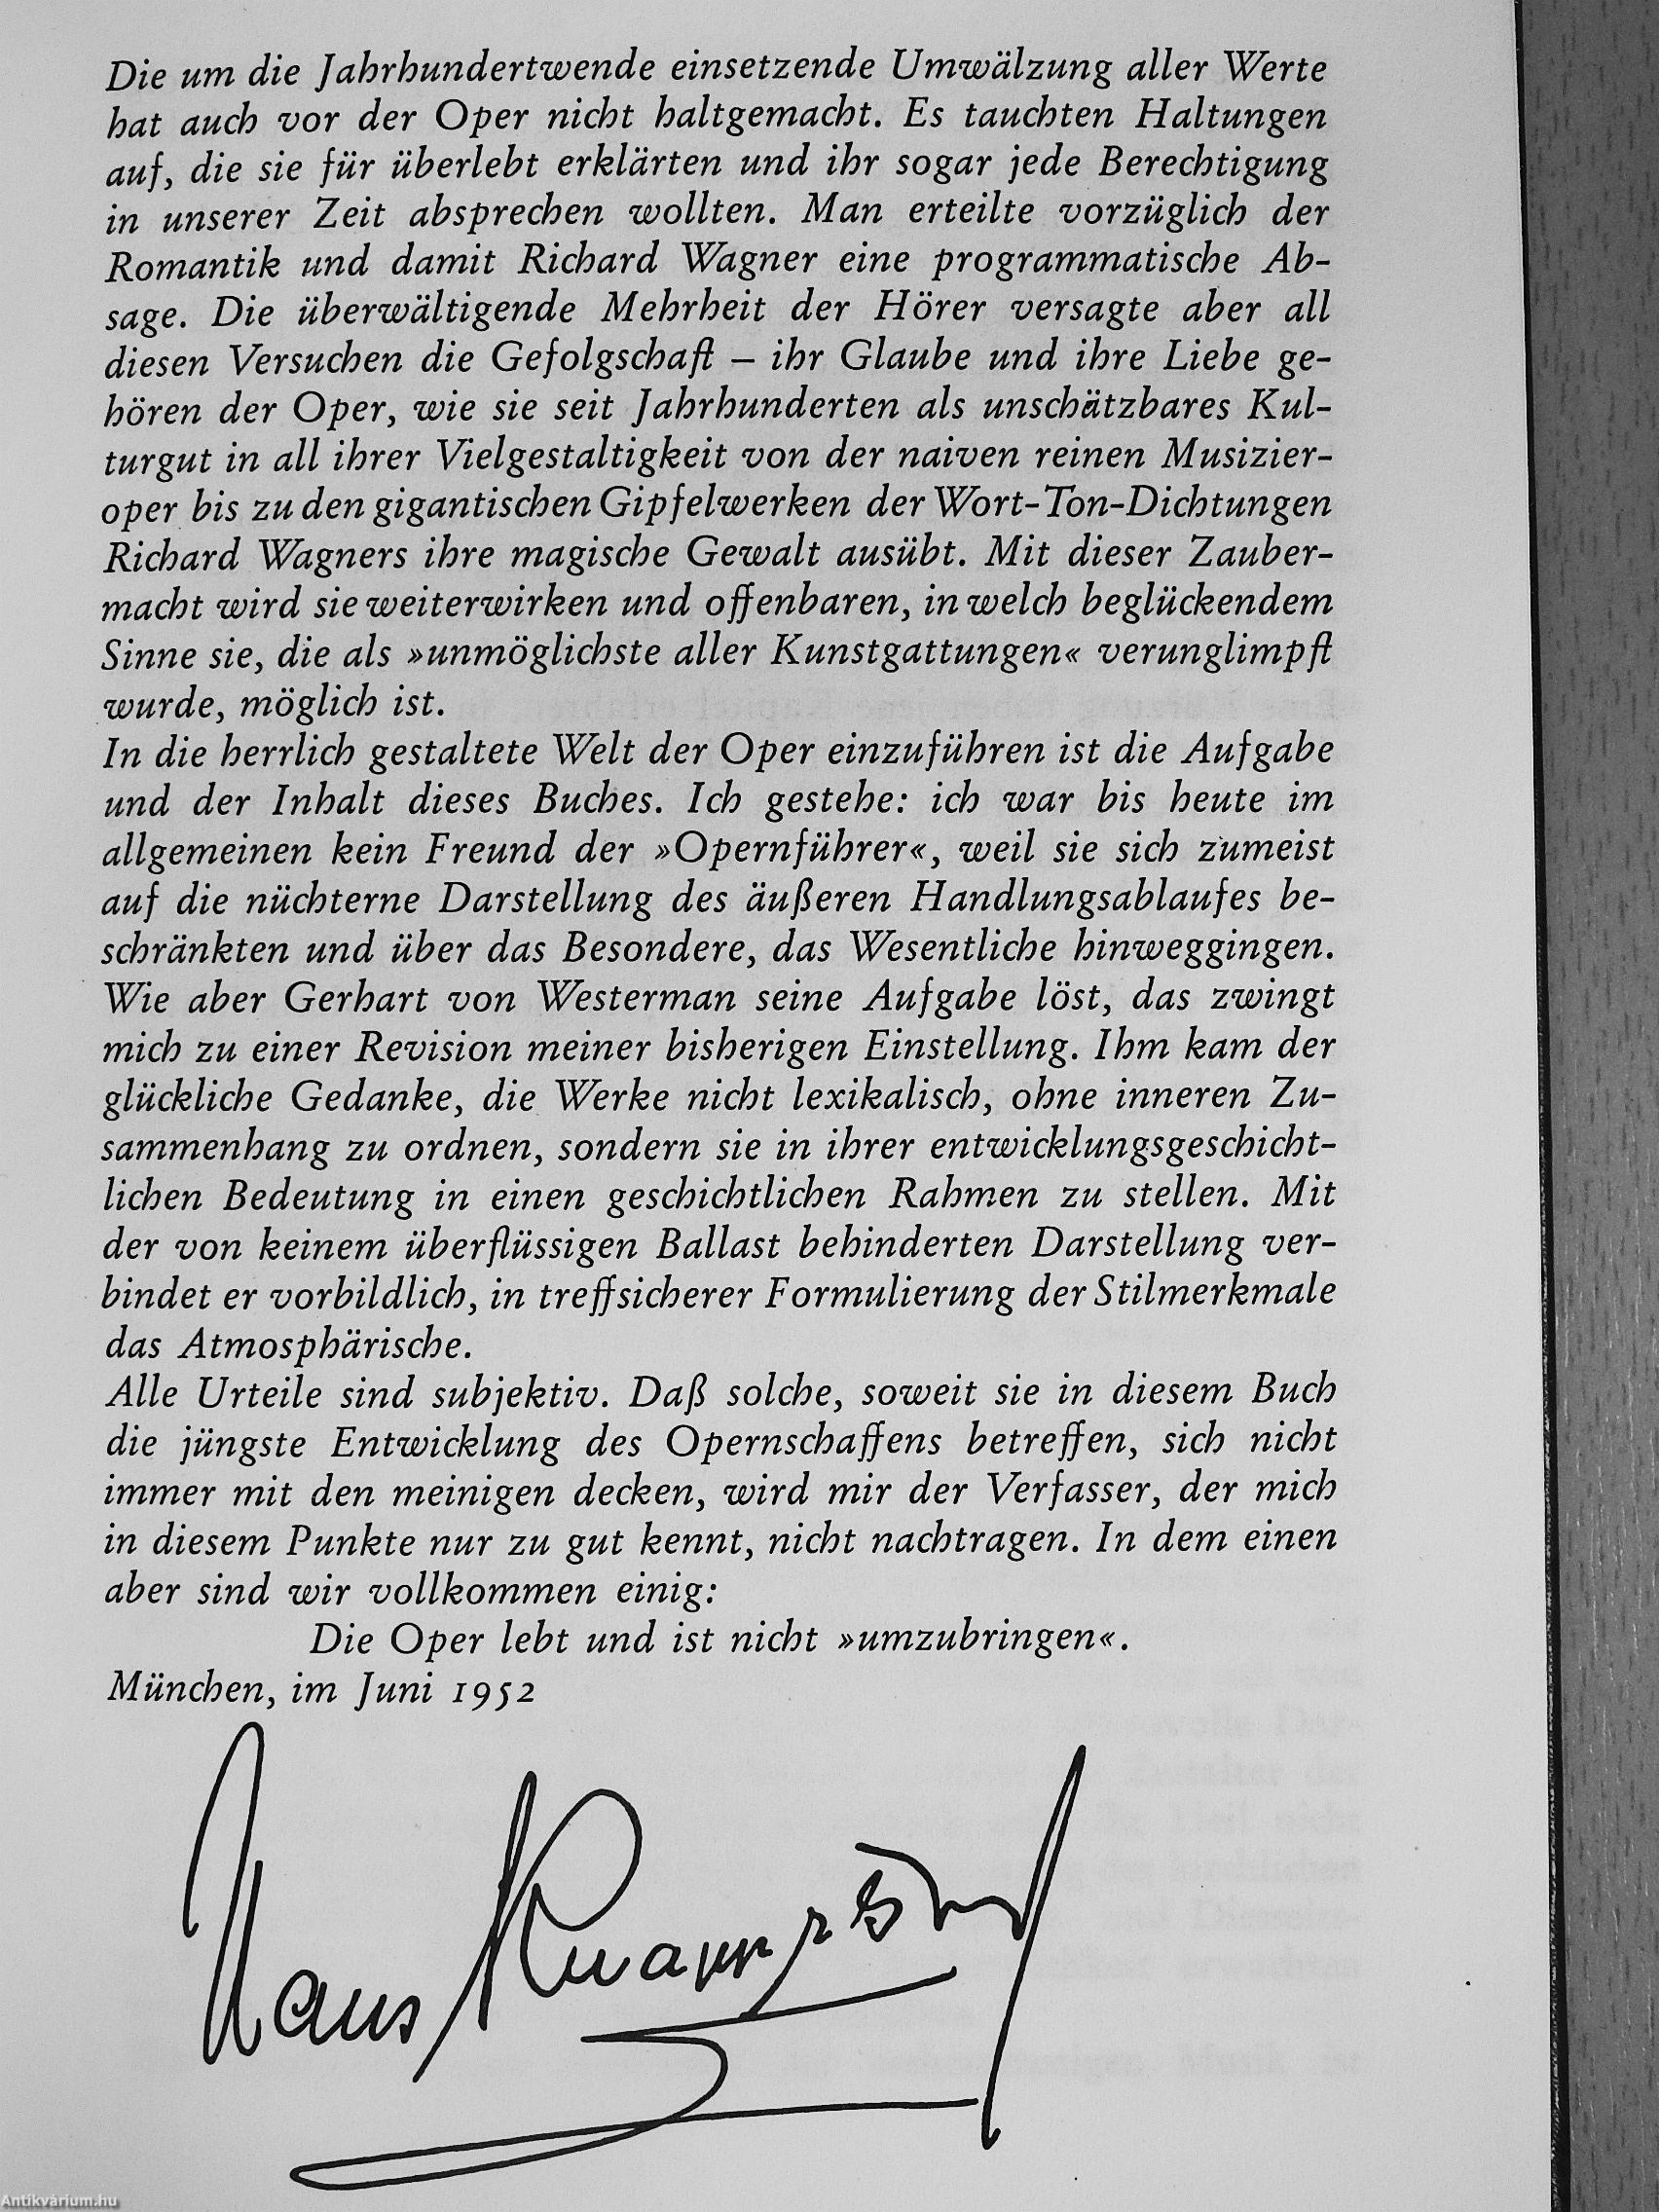 Die um die Jahrhundertwende einsetzende Umwälzung aller Werte
hat auch vor der Oper nicht haltgemacht. Es tauchten Haltungen
auf, die sie für überlebt erklärten und ihr sogar jede Berechtigung
in unserer Zeit absprechen wollten. Man erteilte vorzüglich der
Romantik und damit Richard Wagner eine programmatische Ab-
sage. Die überwältigende Mehrheit der Hörer versagte aber all
diesen Versuchen die Gefolgschaft – ihr Glaube und ihre Liebe ge-
hören der Oper, wie sie seit Jahrhunderten als unschätzbares Kul-
turgut in all ihrer Vielgestaltigkeit von der naiven reinen Musizier-
oper bis zu den gigantischen Gipfelwerken der Wort-Ton-Dichtungen
Richard Wagners ihre magische Gewalt ausübt. Mit dieser Zauber-
macht wird sie weiterwirken und offenbaren, in welch beglückendem
Sinne sie, die als »unmöglichste aller Kunstgattungen« verunglimpft
wurde, möglich ist.
In die herrlich gestaltete Welt der Oper einzuführen ist die Aufgabe
und der Inhalt dieses Buches. Ich gestehe: ich war bis heute im
allgemeinen kein Freund der »Opernführer«, weil sie sich zumeist
auf die nüchterne Darstellung des äußeren Handlungsablaufes be-
schränkten und über das Besondere, das Wesentliche hinweggingen.
Wie aber Gerhart von Westerman seine Aufgabe löst, das zwingt
mich zu einer Revision meiner bisherigen Einstellung. Ihm kam der
glückliche Gedanke, die Werke nicht lexikalisch, ohne inneren Zu-
sammenhang zu ordnen, sondern sie in ihrer entwicklungsgeschicht-
lichen Bedeutung in einen geschichtlichen Rahmen zu stellen. Mit
der von keinem überflüssigen Ballast behinderten Darstellung ver-
bindet er vorbildlich, in treffsicherer Formulierung der Stilmerkmale
das Atmosphärische.
Alle Urteile sind subjektiv. Daß solche, soweit sie in diesem Buch
die jüngste Entwicklung des Opernschaffens betreffen, sich nicht
immer mit den meinigen decken, wird mir der Verfasser, der mich
in diesem Punkte nur zu gut kennt, nicht nachtragen. In dem einen
aber sind wir vollkommen einig:
Die Oper lebt und ist nicht »umzubringen«.
München, im Juni 1952
Hans Knappertsbusch
Antikvárium.hu